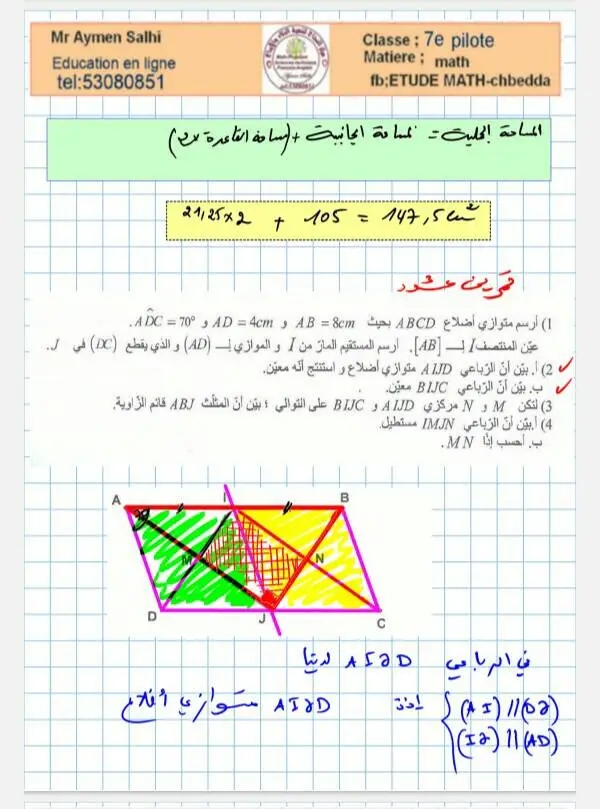 Mr Aymen Salhi
Education en ligne
tel:53080851
Classe ; 7e pilote
Matiere ; math
fb;ETUDE MATH-chbedda
المساحة الجملية = المساحة الجانبية + (مساحة القاعدة ×2)
21,25×2 + 105 = 147,5 cm²
تمرين عدد
1) أرسم متوازي أضلاع ABCD بحيث AB = 8cm و AD = 4cm و ADC = 70°.
عيّن المنتصف I لـ [AB]. أرسم المستقيم المارّ من I و الموازي لـ (AD) و الذي يقطع (DC) في J.
2) أ. بيّن أنّ الرّباعي AIJD متوازي أضلاع و استنتج أنّه معيّن.
ب. بيّن أنّ الرّباعي BIJC معيّن.
3) لتكن M و N مركزي AIJD و BIJC على التوالي ؛ بيّن أنّ المثلّث ABJ قائم الزّاوية.
4) أ.بيّن أنّ الرّباعي IMJN مستطيل.
ب. أحسب إذًا MN.
A I B
M N
D J C
في الرباعي AIJD لدينا
(AI) // (DJ) إذن AIJD متوازي أضلاع
(IJ) // (AD)